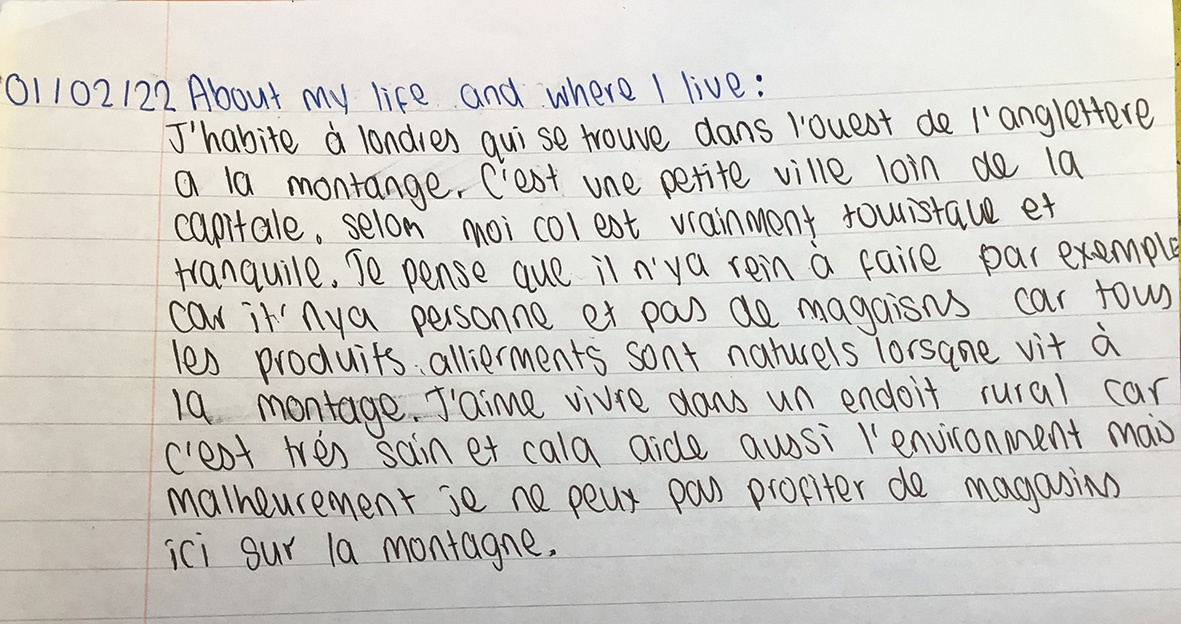 01/02/22 About my life and where I live:
J'habite à londres qui se trouve dans l'ouest de l'anglettere
a la montange. C'est une petite ville loin de la
capitale. selon moi col est vrainment touristque et
tranquile. Je pense que il n'ya rein à faire par exemple
car it' nya personne et pas de magaisns car tous
les produits allierments sont naturels lorsqne vit à
la montage. J'aime vivre dans un endoit rural car
c'est trés sain et cala aide aussi l'environment mais
malheurement je ne peux pas profiter de magasins
ici sur la montagne.